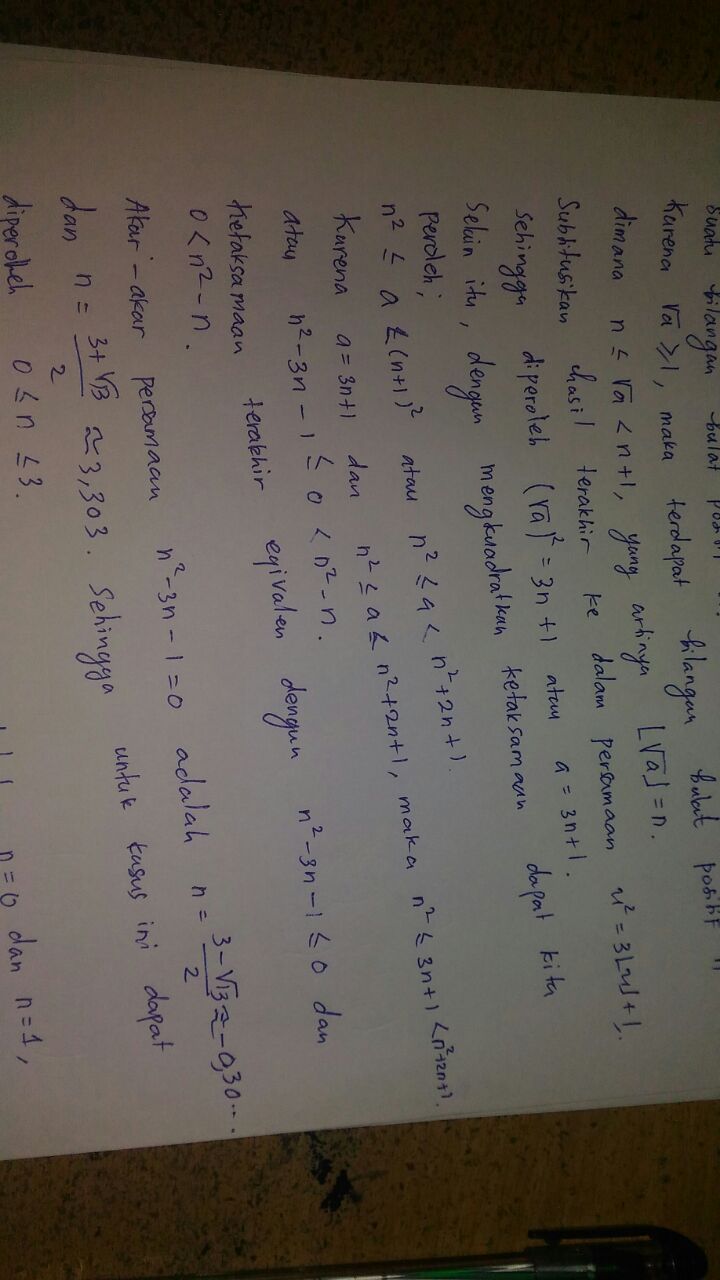 suatu bilangan bulat positif
Karena √a ≥ 1, maka terdapat bilangan bulat positif n
dimana n ≤ √a < n+1, yang artinya ⌊√a⌋ = n.
Subtitusikan hasil terakhir ke dalam persamaan u² = 3⌊u⌋ + 1.
sehingga diperoleh (√a)² = 3n + 1 atau a = 3n+1.
Selain itu, dengan mengkuadratkan ketaksamaan dapat kita
peroleh;
n² ≤ a < (n+1)² atau n² ≤ a < n²+2n+1.
Karena a = 3n+1 dan n² ≤ a < n²+2n+1, maka n² ≤ 3n+1 < n²+2n+1.
atau n² − 3n − 1 ≤ 0 < n² − n.
Ketaksamaan terakhir eqivalen dengan n² − 3n − 1 ≤ 0 dan
0 < n² − n.
Akar-akar persamaan n² − 3n − 1 = 0 adalah n = (3 − √13)/2 ≈ −0,30...
dan n = (3 + √13)/2 ≈ 3,303. Sehingga untuk kasus ini dapat
diperoleh 0 ≤ n ≤ 3.
n = 0 dan n = 1,